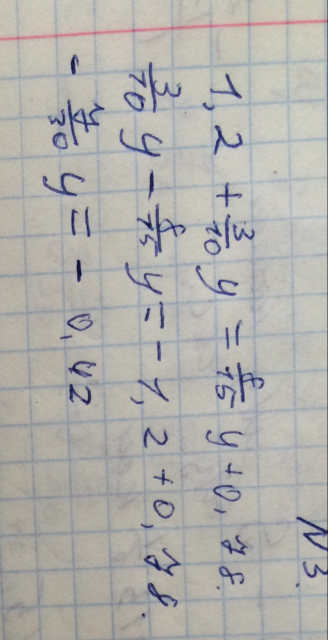 N3.
1,2 + 3/10 y = 8/15 y + 0,78.
3/10 y - 8/15 y = - 1,2 + 0,78.
- 7/30 y = - 0,42